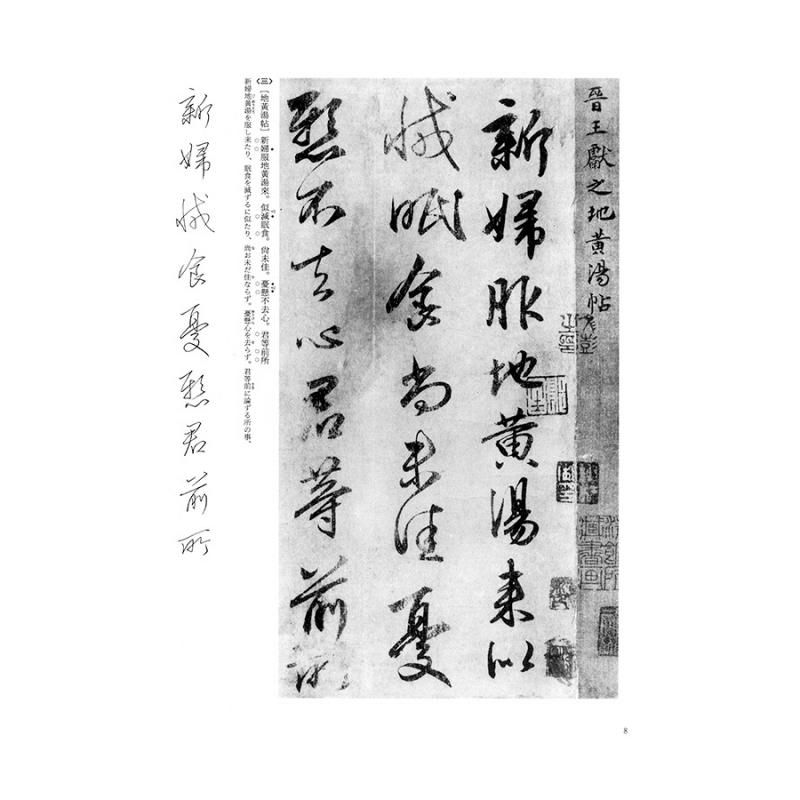 晉王獻之地黃湯帖
新婦服地黃湯来似
減眠食尚未佳憂
懸不去心君等前所
〈三〉〔地黃湯帖〕新婦服地黃湯來。似減眠食。尙未佳。憂懸不去心。君等前所
新婦地黃湯を服し来たり、眠食を減ずるに似たり、尚お未だ佳ならず。憂懸心を去らず。君等前に論ずる所の事、
新婦減食憂懸君前所
8